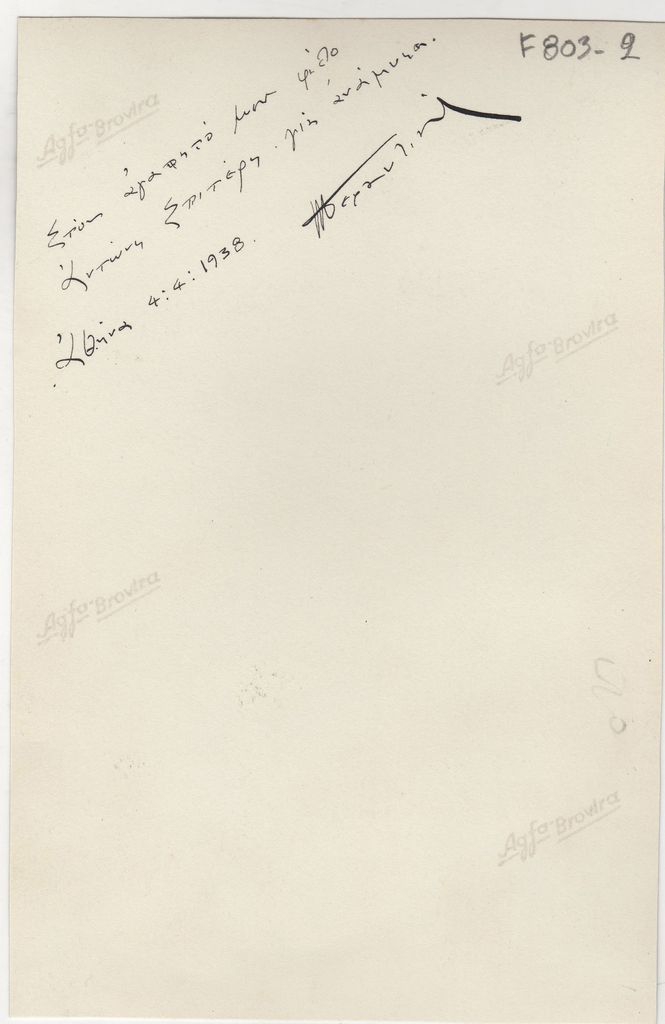 F803-2
Στον ἀγαπητό μου φίλο
Ἀντώνη Σπιτέρη. γιὰ ἀνάμνηση.
Ἀθήνα 4:4:1938.
Agfa-Brovira
Agfa-Brovira
Agfa-Brovira
Agfa-Brovira